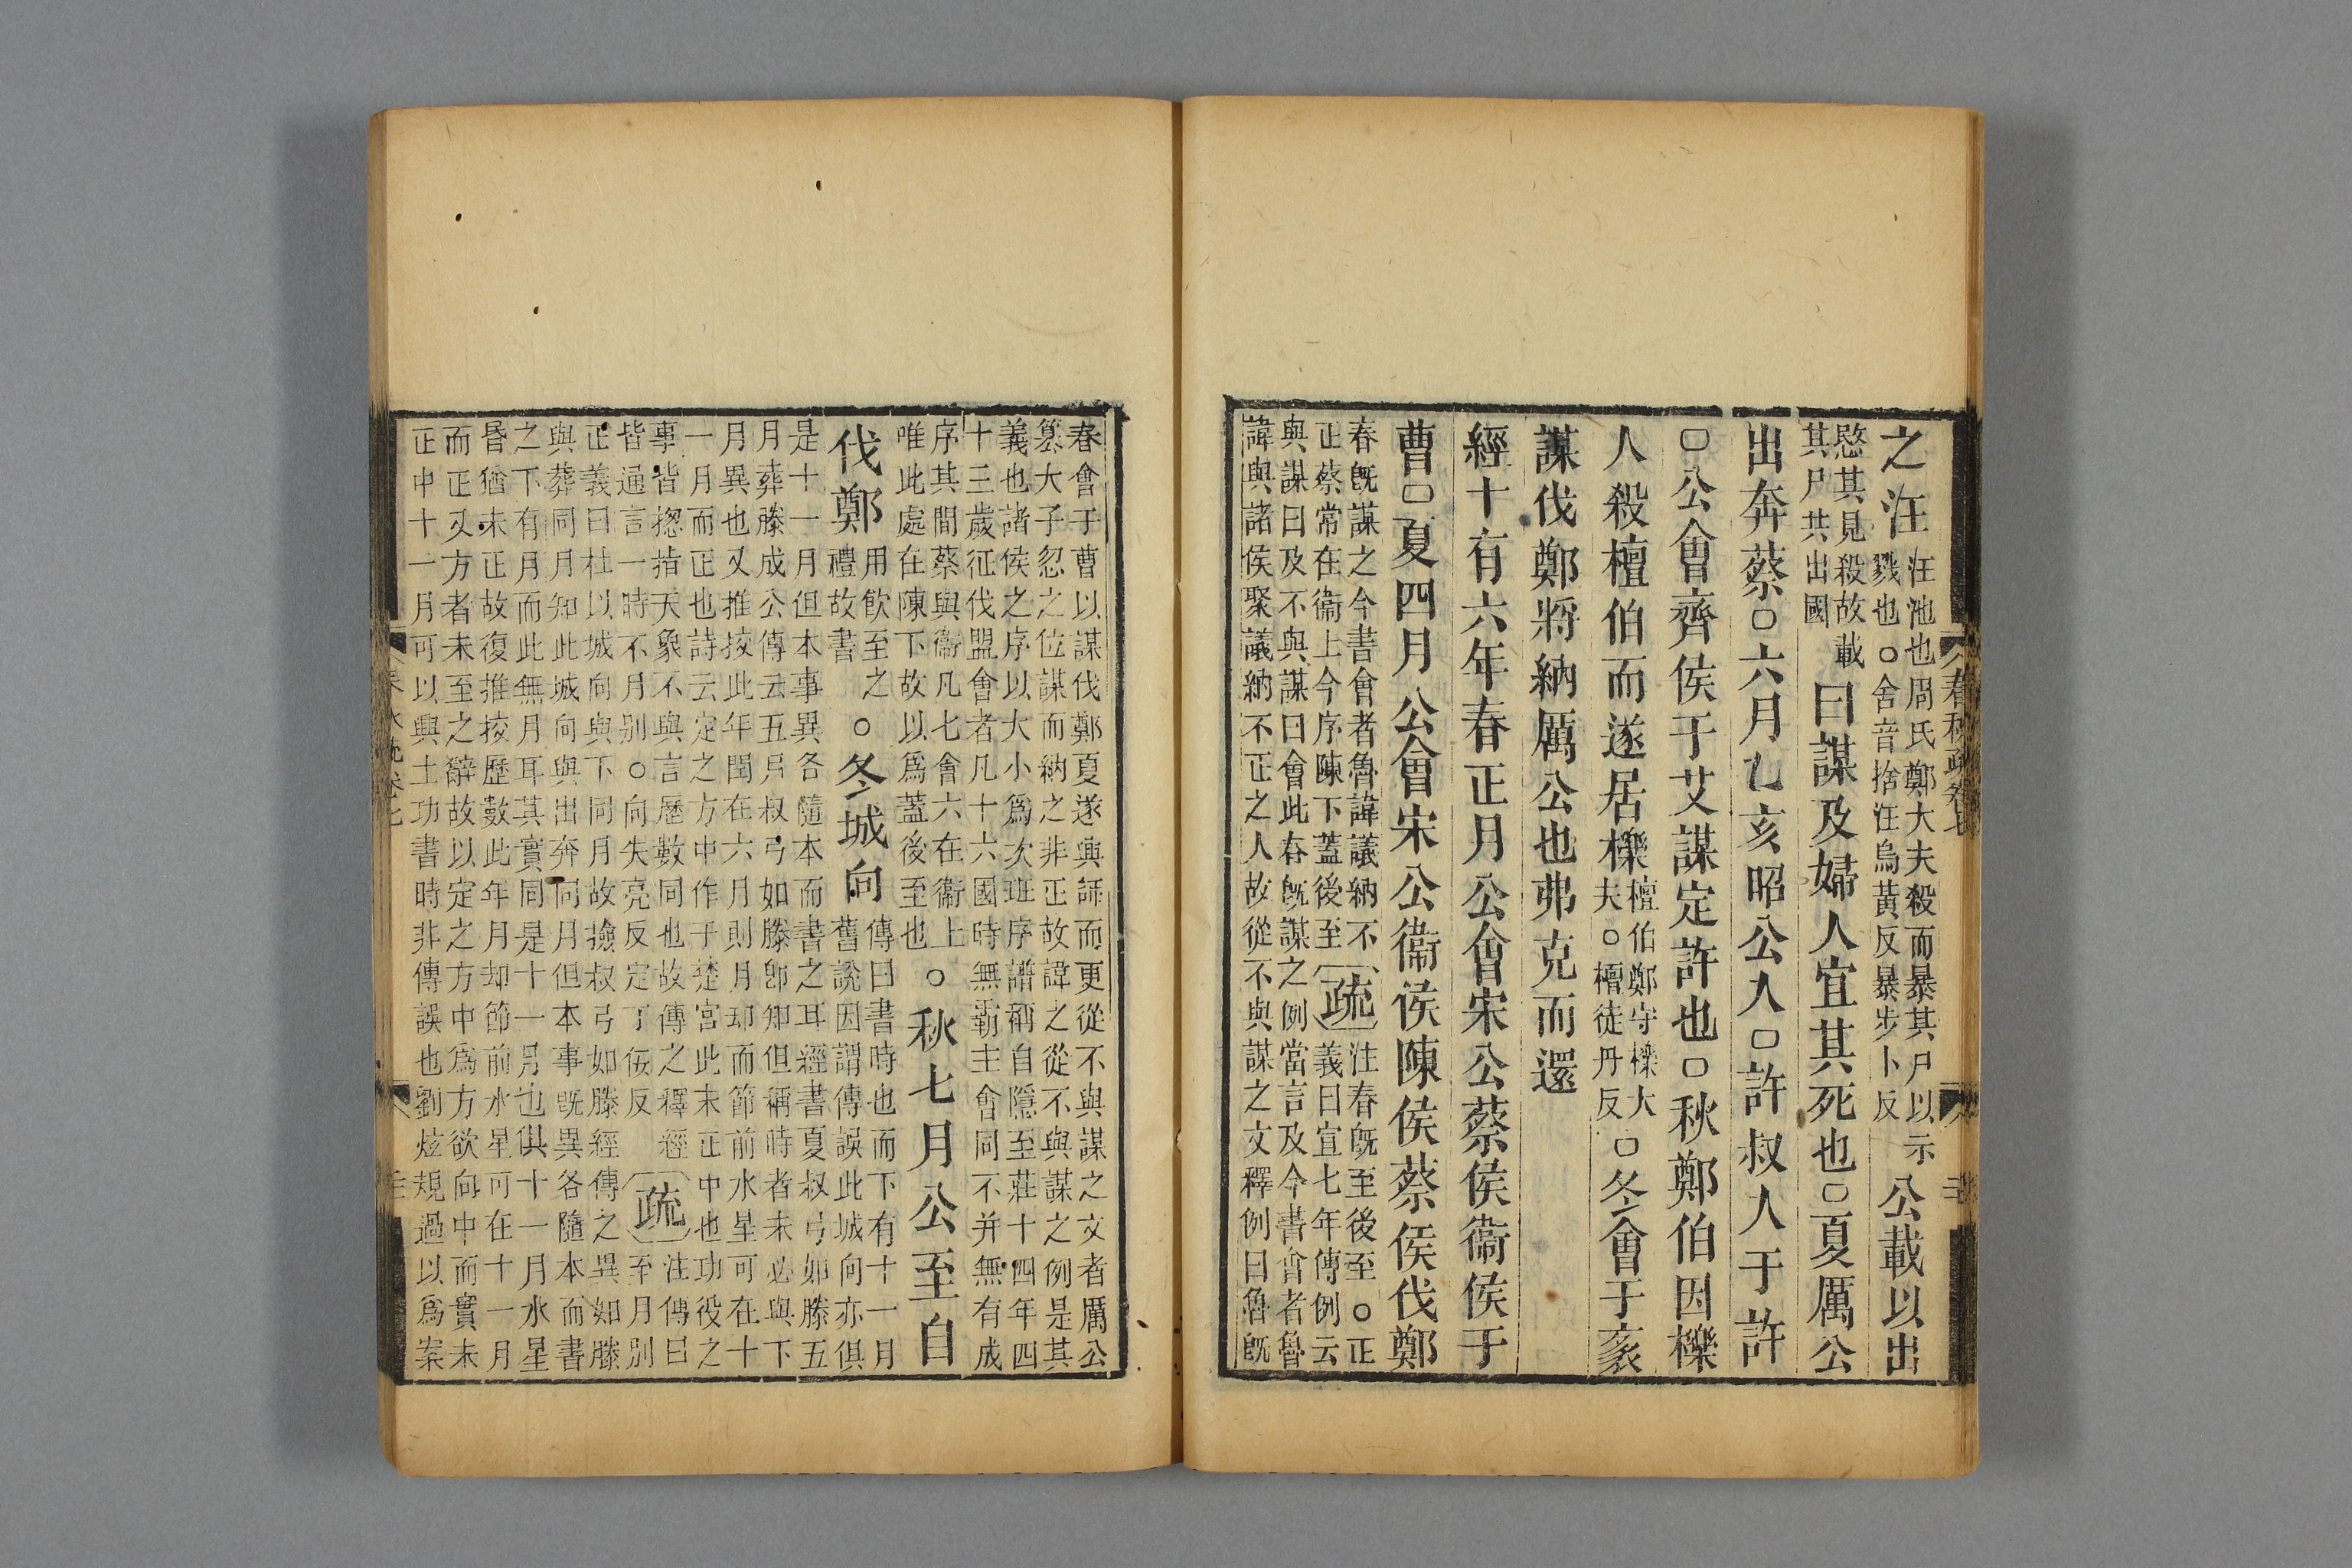 之汪
汪池也周氏鄭大夫殺而暴其尸以示
戮也○舍音捨汪烏黃反暴步卜反
公載以出
愍其見殺故載
其尸共出國
曰謀及婦人宜其死也○夏厲公
出奔蔡○六月乙亥昭公入○許叔入于許
○公會齊侯于艾謀定許也○秋鄭伯因櫟
人殺檀伯而遂居櫟
檀伯鄭守櫟大
夫○檀徒丹反
○冬會于袲
謀伐鄭將納厲公也弗克而還
經十有六年春正月公會宋公蔡侯衞侯于
曹○夏四月公會宋公衞侯陳侯蔡侯伐鄭
春旣謀之今書會者魯諱議納不
正蔡常在衞上今序陳下蓋後至
疏
注春旣至後至○正
義曰宣七年傳例云
與謀曰及不與謀曰會此春旣謀之例當言及今書會者魯
諱與諸侯聚議納不正之人故從不與謀之文釋例曰魯旣
春會于曹以謀伐鄭夏遂興師而更從不與謀之文者厲公
篡大子忽之位謀而納之非正故諱之從不與謀之例是其
義也諸侯之序以大小爲次班序譜稱自隱至莊十四年四
十三歲征伐盟會者凡十六國時無霸主會同不并無有成
序其間蔡與衞凡七會六在衞上
唯此處在陳下故以爲蓋後至也
○秋七月公至自
伐鄭
用飮至之
禮故書
○冬城向
傳曰書時也而下有十一月
舊說因謂傳誤此城向亦俱
是十一月但本事異各隨本而書之耳經書夏叔弓如滕五
月葬滕成公傳云五月叔弓如滕卽知但稱時者未必與下
月異也又推挍此年閏在六月則月却而節前水星可在十
一月而正也詩云定之方中作于楚宮此未正中也功役之
事皆揔指天象不與言歷數同也故傳之釋經
皆通言一時不月別○向失亮反定丁佞反
疏
注傳曰
至月別
正義曰杜以城向與下同月故檢叔弓如滕經傳之異如滕
與葬同月知此城向與出奔同月但本事旣異各隨本而書
之下有月而此無月耳其實同是十一月也俱十一月水星
昏猶未正故復推挍歷數此年月却節前水星可在十一月
而正又方者未至之辭故以定之方中爲方欲向中而實未
正中十一月可以興土功書時非傳誤也劉炫規過以爲案
春秋疏卷七